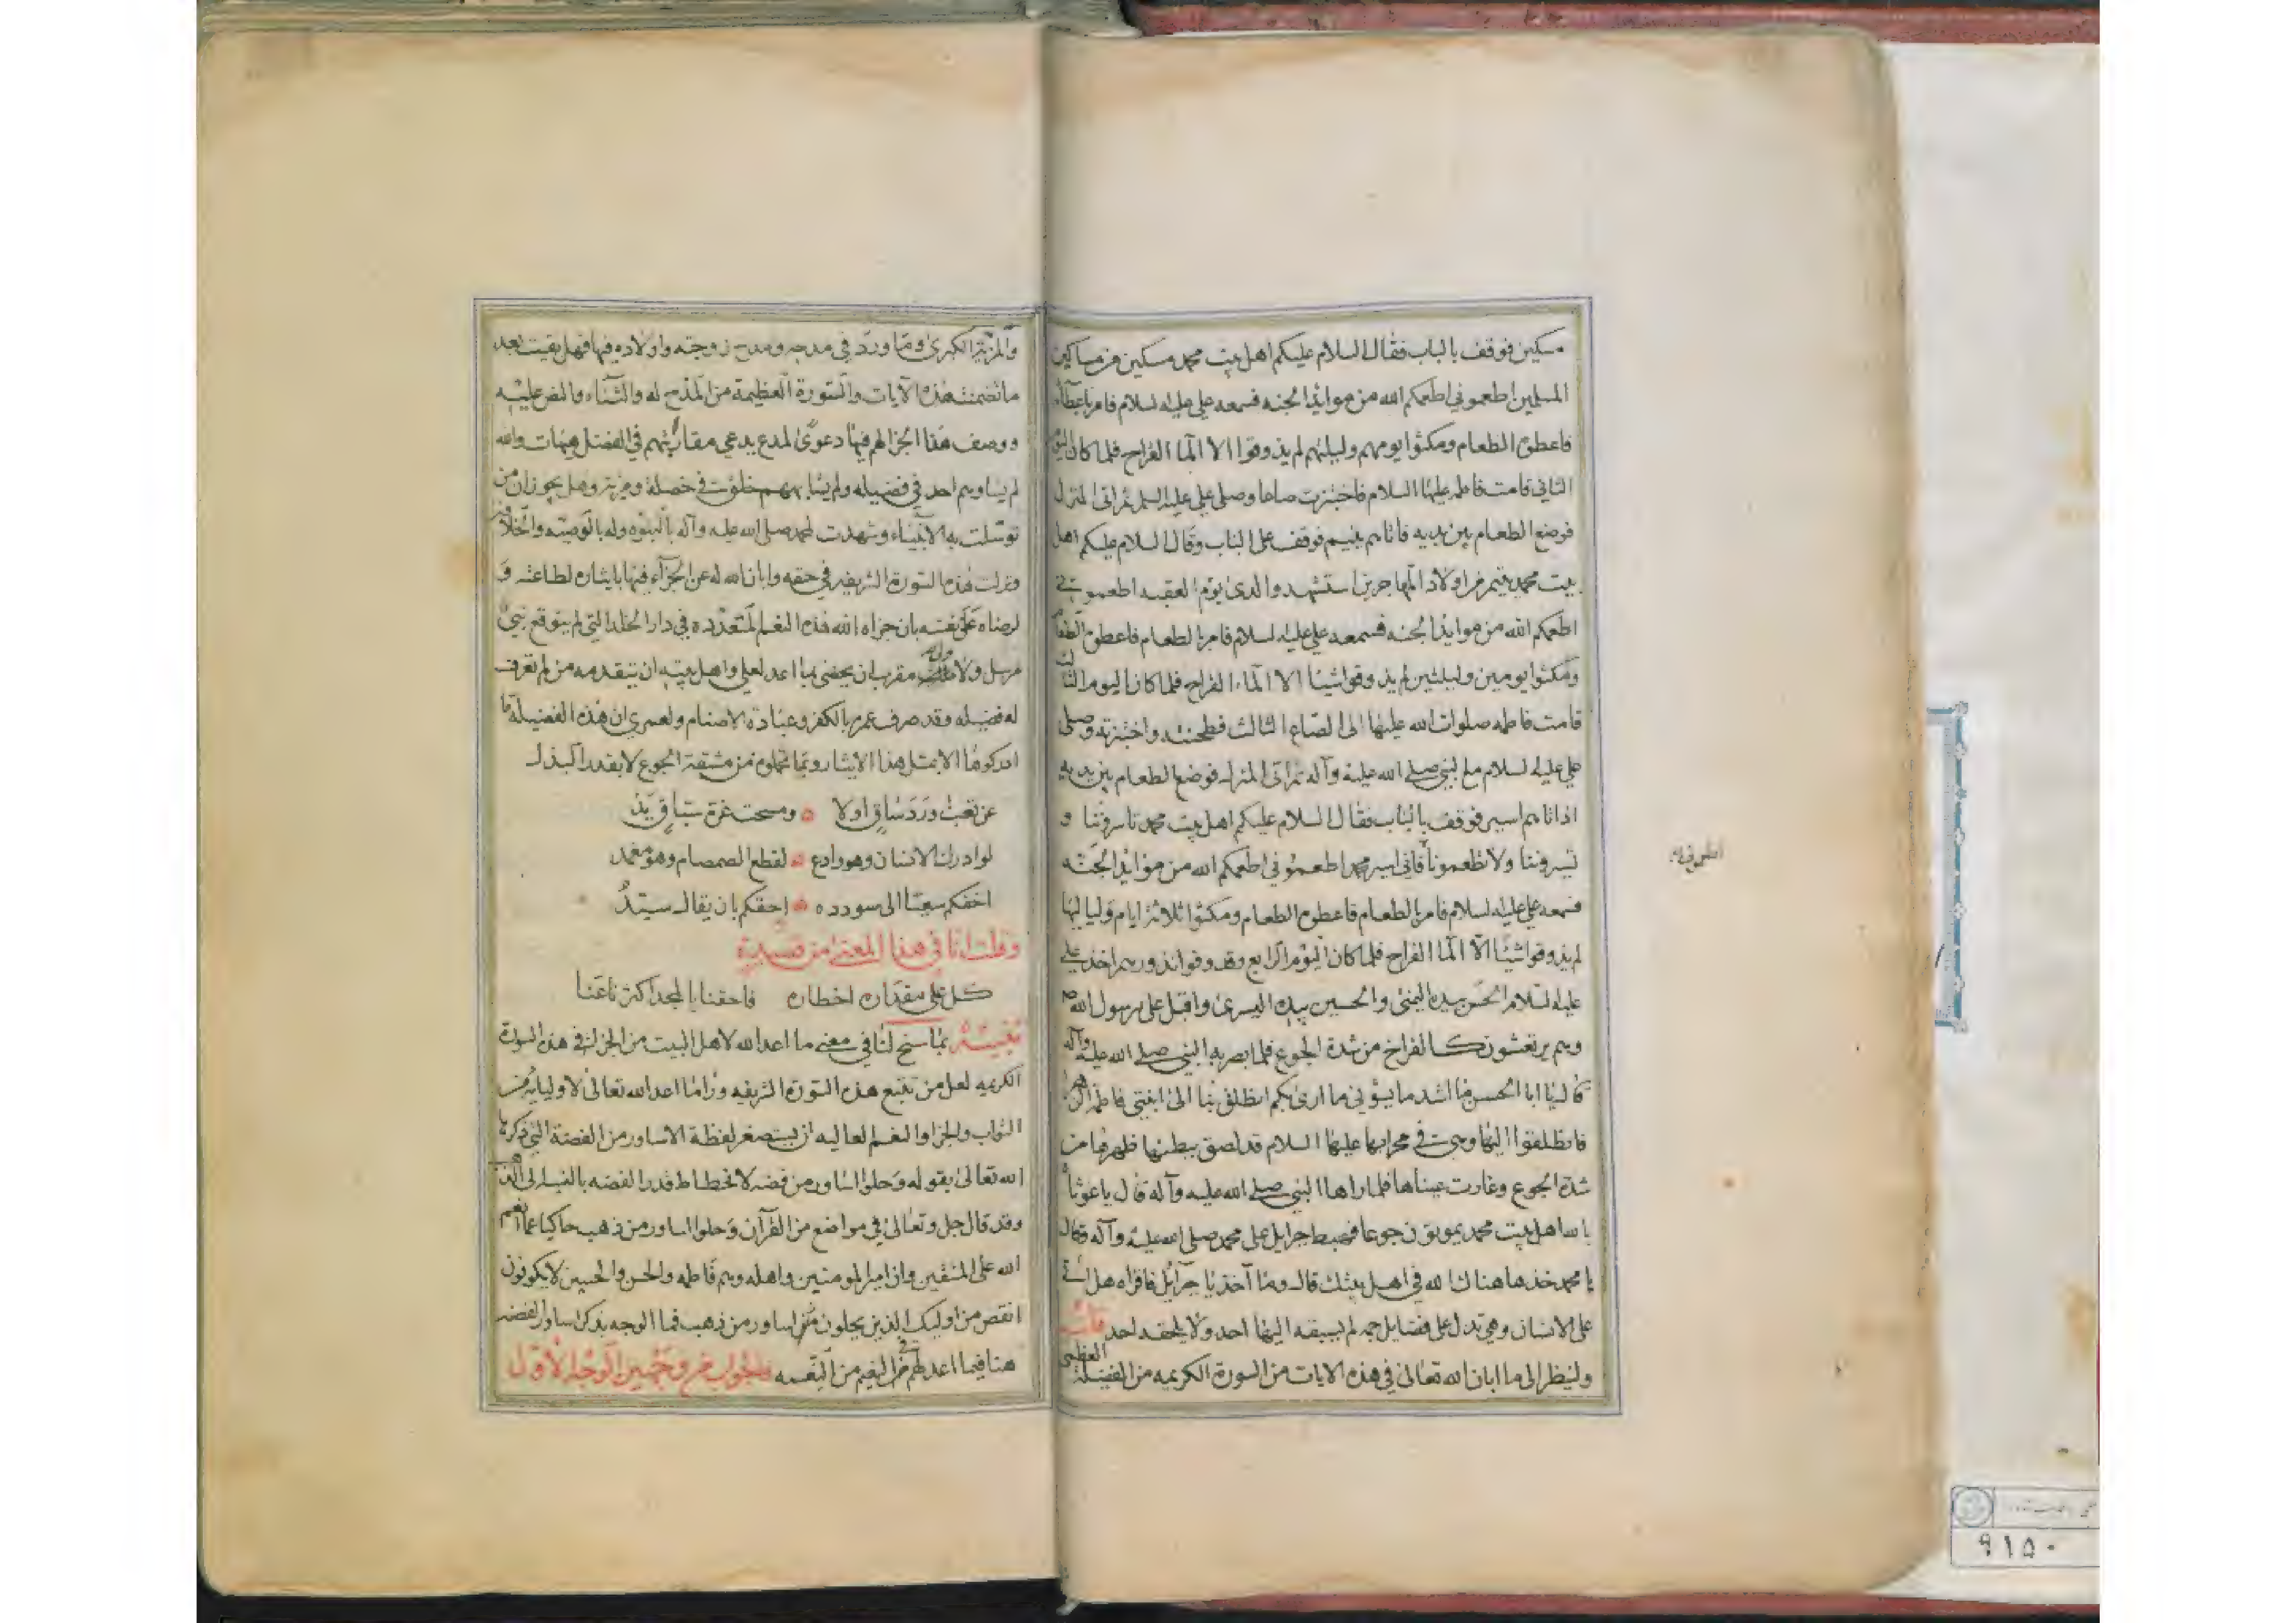 مسكين فوقف بالباب فقال السلام عليكم اهل بيت محمد مسكين من مساكين
المسلمين اطعموني اطعمكم الله من موايد الجنه فسمعه علي عليه السلام فامر باعطائه
فاعطوه الطعام ومكثوا يومهم وليلتهم لم يذوقوا الا الماء القراح فلما كان اليوم
الثاني قامت فاطمه عليها السلام فاختبزت صاعا وصلى علي عليه السلم ثم اتى المنزل
فوضع الطعام بين يديه فاتاهم يتيم فوقف على الباب وقال السلام عليكم اهل
بيت محمد يتيم من اولاد المهاجرين استشهد والدى يوم العقبه اطعموني
اطعمكم الله من موايد الجنه فسمعه علي عليه السلام فامر بالطعام فاعطوه الطعام
ومكثوا يومين وليلتين لم يذوقوا شيئا الا الماء القراح فلما كان اليوم الثالث
قامت فاطمه صلوات الله عليها الى الصاع الثالث فطحنته واختبزته وصلى
علي عليه السلام مع النبي صلى الله عليه وآله ثم اتى المنزل فوضع الطعام بين يديه
اذ اتاهم اسير فوقف بالباب فقال السلام عليكم اهل بيت محمد تاسروننا و
تسيروننا ولا تطعموننا فاني اسير محمد اطعموني اطعمكم الله من موايد الجنه
فسمعه علي عليه السلام فامر بالطعام فاعطوه الطعام ومكثوا ثلاثة ايام ولياليها
لم يذوقوا شيئا الا الماء القراح فلما كان اليوم الرابع وقد وفوا نذورهم اخذ علي
عليه السلام الحسن بيده اليمنى والحسين بيده اليسرى واقبل على رسول الله
وهم يرتعشون كالفراخ من شدة الجوع فلما ابصر به النبي صلى الله عليه وآله
قال يا ابا الحسن ما اشد ما يسؤني ما ارى بكم انطلق بنا الى ابنتي فاطمه
فانطلقوا اليها وهى في محرابها عليها السلام قد لصق بطنها بظهرها من
شدة الجوع وغارت عيناها فلما راها النبي صلى الله عليه وآله قال ياغوثاه
يا الله اهل بيت محمد يموتون جوعا فهبط جبرايل على محمد صلى الله عليه وآله وقال
يا محمد خذها هناك الله في اهل بيتك قال وما آخذ يا جبرايل فاقراه هل اتى
على الانسان وهي تدل على فضايل جمه لم يسبقه اليها احد ولا يلحقه احد
ولينظر الى ما ابان الله تعالى في هذه الايات من السورة الكريمه من الفضيلة العظمى
والمزية الكبرى وما ورد في مدحه ومدح زوجته واولاده فيها فهل بقيت بعد
ما تضمنت هذه الآيات والسورة العظيمة من المدح له والثناء والنص عليه
ووصف هذا الجزا لهم فيها دعوى لمدع يدعي مقاربتهم في الفضل هيهات والله
لم يساوهم احد في فضيله ولم يشابههم خلوق في خصلة ومزية وهل يجوز ان من
توسلت به الانبياء وشهدت لمحمد صلى الله عليه وآله بالنبوه وله بالوصيه والخلافه
ونزلت هذه السورة الشريفه في حقه وابان الله له عن الجزاء فيها بايثاره لطاعته و
لرضاه على نفسه بان جزاه الله هذه النعم المتعدده في دار الخلد التي لم يتوقع نبي
مرسل ولا ملك مقرب ان يحضى بما اعد لعلي واهل بيته ان يتقدمه من لم تعرف
له فضيله وقد صرف عمره بالكفر وعبادة الاصنام ولعمري ان هذه الفضيلة ما
ادركوها الا بمثل هذا الايثار وبما تحملوه من مشقة الجوع لا بقدر البذل
عن تعب ورد ساق اولا ومسحت غرة سباق يد
لو ادرك الانسان وهو رادع لقطع الصمصام وهو مغمد
اخفكم سعيا الى سودده احقكم بان يقال سيد
وقلت انا في هذا المعنى من قصيدة
كل على مقداره اخطاره فاحقنا بالمجد اكثرنا عنا
تنبيه بما سنح لنا في معنى ما اعد الله لاهل البيت من الجزا في هذه السورة
الكريمه لعل من تتبع هذه السورة الشريفه وراى ما اعد الله تعالى لاوليائه من
الثواب والجزا والنعم العاليه ان يستصغر لفظة الاساور من الفضة التي ذكرها
الله تعالى بقوله وحلوا اساور من فضه لانحطاط قدر الفضه بالنسبة الى الذهب
وقد قال جل وتعالى في مواضع من القرآن وحلوا اساور من ذهب حاكيا عما انعم
الله على المتقين وان امير المومنين واهله وهم فاطمه والحسن والحسين لا يكونون
انقص من اوليك الذين يحلون من اساور من ذهب فما الوجه بذكر اساور الفضه
هنا فيما اعد لهم في النعيم من النعمه فالجواب من وجهين الوجه الاول
٩١٥٠